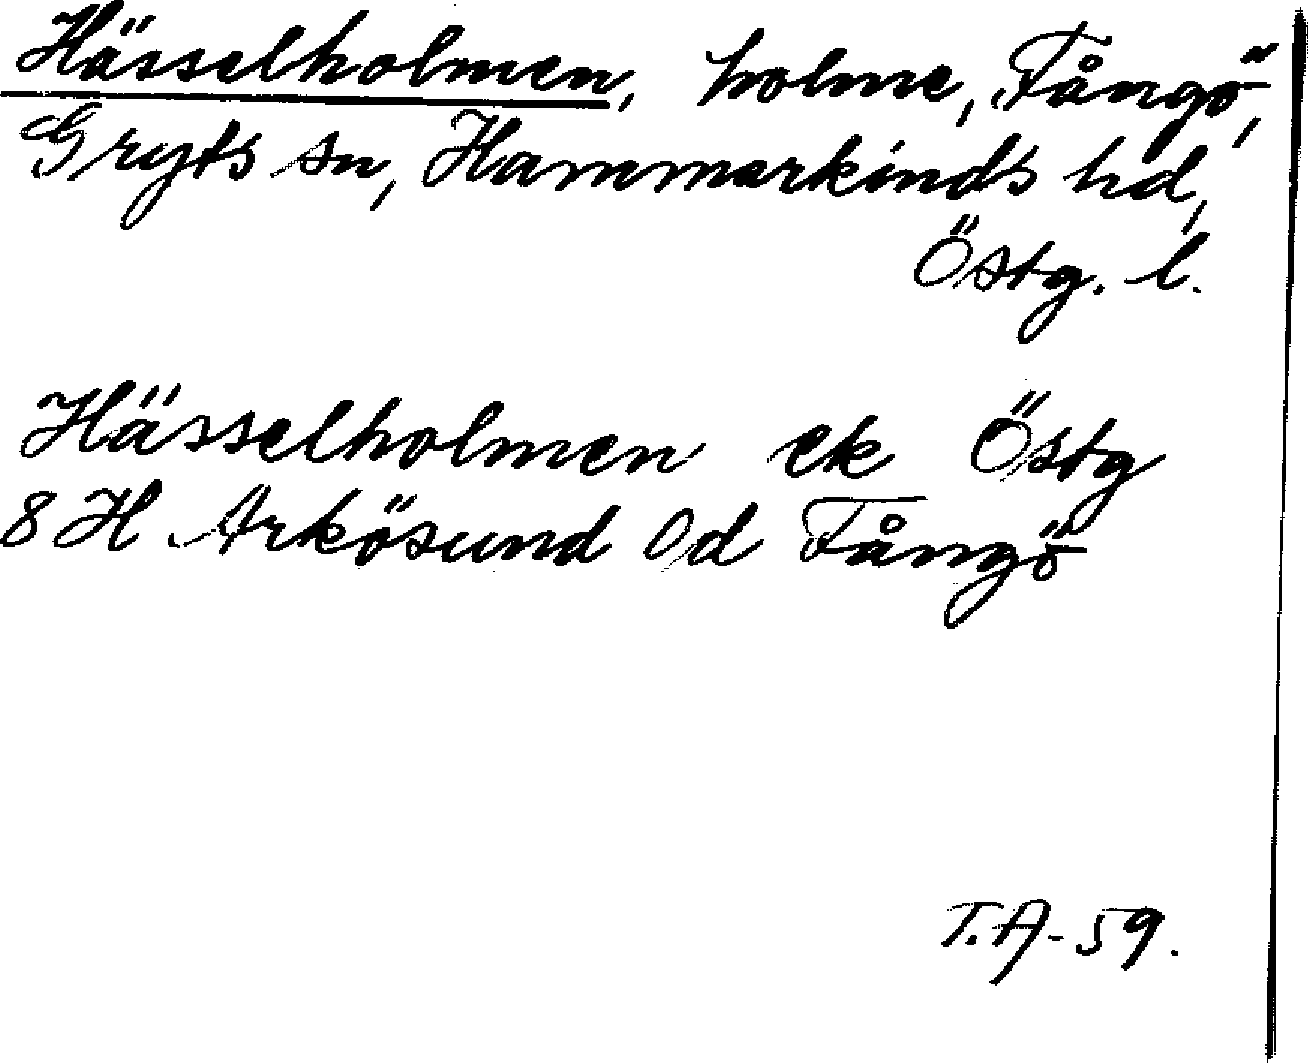 Hässelholmen, holme, Fångö,
Gryts sn, Hammarkinds hd,
Östg. l.
Hässelholmen ek Östg
8 H Arkösund Od Fångö
T.A-59.